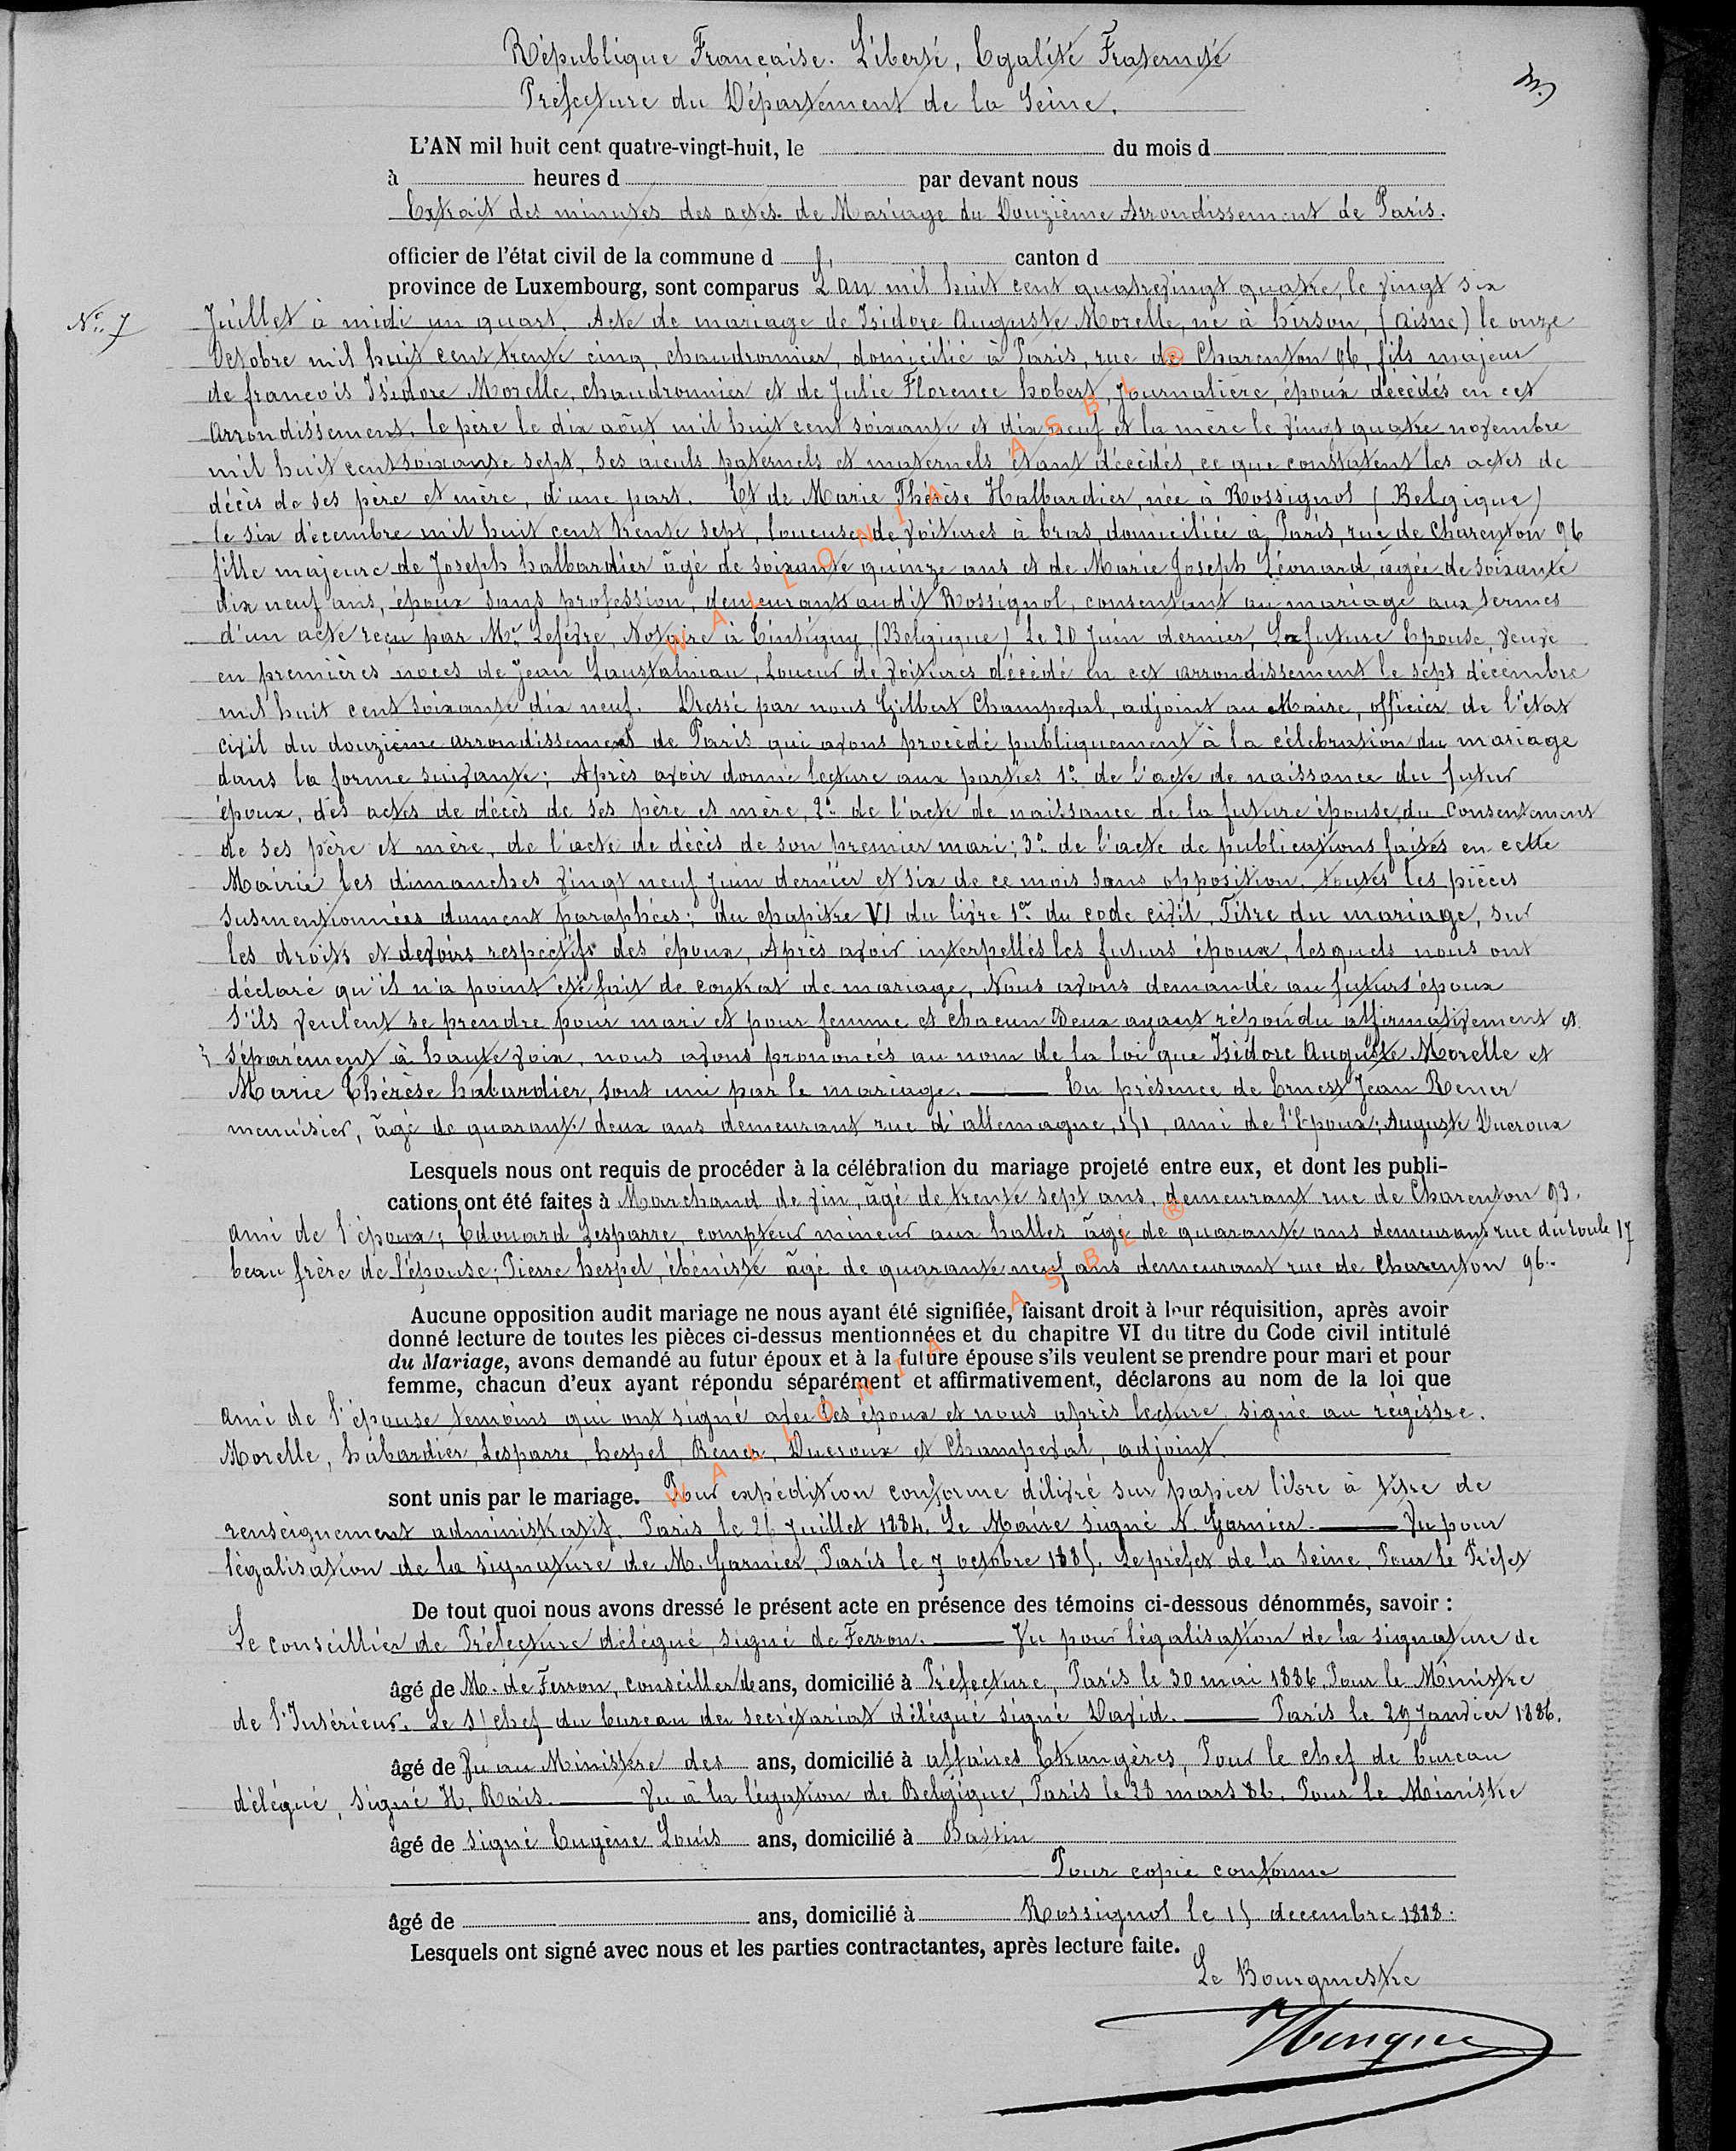 République Française. Liberté, Egalité Fraternité
Préfecture du Département de la Seine.
L'AN mil huit cent quatre-vingt-huit, le du mois d
à heures d par devant nous
Extrait des minutes des actes de Mariage du Douzième Arrondissement de Paris.
officier de l'état civil de la commune d canton d
province de Luxembourg, sont comparus L'an mil huit cent quatrevingt quatre, le vingt six
No. 7
Juillet à midi un quart. Acte de mariage de Isidore Auguste Morelle, né à hirson, (Aisne) le onze
Octobre mil huit cent trente cinq, chaudronnier, domicilié à Paris, rue de Charenton 96, fils majeur
de francois Isidore Morelle, chaudronnier et de Julie Florence hobert, Journalière, époux décédés en cet
arrondissement, le père le dix août mil huit cent soixante et dix neuf et la mère le vingt quatre novembre
mil huit cent soixante sept, ses aïeuls paternels et maternels étant décédés, ce que constatent les actes de
décès de ses père et mère, d'une part. Et de Marie Thérèse Halbardier, née à Rossignol (Belgique)
le six décembre mil huit cent trente sept, loueuse de voitures à bras, domiciliée à Paris, rue de Charenton 96
fille majeure de Joseph halbardier âgé de soixante quinze ans et de Marie Joseph Léonard, âgée de soixante
dix neuf ans, époux sans profession, demeurants audit Rossignol, consentant au mariage aux termes
d'un acte reçu par Me Lefevre, Notaire à Tintigny, (Belgique) le 20 Juin dernier, La future Epouse, veuve
en premières noces de Jean Loustalniau, Loueur de voitures décédé en cet arrondissement le sept décembre
mil huit cent soixante dix neuf. Dressé par nous Gilbert Champeval, adjoint au Maire, officier de l'état
civil du douzième arrondissement de Paris qui avons procédé publiquement à la célébration du mariage
dans la forme suivante; Après avoir donné lecture aux parties 1o de l'acte de naissance du futur
époux, des actes de décès de ses père et mère, 2o de l'acte de naissance de la future épouse, du consentement
de ses père et mère, de l'acte de décès de son premier mari; 3o de l'acte de publications faites en cette
Mairie les dimanches vingt neuf Juin dernier et six de ce mois sans opposition, toutes les pièces
susmentionnées dument paraphées; du chapitre VI du livre 1er du code civil, Titre du mariage, sur
les droits et devoirs respectifs des époux, Après avoir interpellés les futurs époux, lesquels nous ont
déclaré qu'il n'a point été fait de contrat de mariage, Nous avons demandé au futurs époux
S'ils veulent se prendre pour mari et pour femme et chacun Deux ayant répondu affirmativement et
séparément à haute voix, nous avons prononcés au nom de la loi que Isidore Auguste Morelle et
Marie Thérèse habardier, sont uni par le mariage. En présence de Ernest Jean Rener
menuisier, âgé de quarante deux ans demeurant rue d'allemagne, 151, ami de l'Epoux; Auguste Ducroux
Lesquels nous ont requis de procéder à la célébration du mariage projeté entre eux, et dont les publi-
cations ont été faites à Marchand de vin, âgé de trente sept ans, demeurant rue de Charenton 93,
ami de l'époux; Edouard Lesparre, compteur mineur aux halles âgé de quarante ans demeurant rue du roule 17
beau frère de l'épouse; Pierre hespel, ébéniste âgé de quarante neuf ans demeurant rue de Charenton 96.
Aucune opposition audit mariage ne nous ayant été signifiée, faisant droit à leur réquisition, après avoir
donné lecture de toutes les pièces ci-dessus mentionnées et du chapitre VI du titre du Code civil intitulé
du Mariage, avons demandé au futur époux et à la future épouse s'ils veulent se prendre pour mari et pour
femme, chacun d'eux ayant répondu séparément et affirmativement, déclarons au nom de la loi que
ami de l'épouse temoins qui ont signé avec les époux et nous après lecture signé au régistre.
Morelle, habardier, Lesparre, hespel, Rener, Ducroux et Champeval, adjoint
sont unis par le mariage. Pour expédition conforme délivré sur papier libre à titre de
renseignement administratif. Paris le 26 Juillet 1884. Le Maire signé A. Garnier. Vu pour
légalisation de la signature de M. Garnier, Paris le 7 octobre 1885. Le préfet de la Seine, Pour le Préfet
De tout quoi nous avons dressé le présent acte en présence des témoins ci-dessous dénommés, savoir :
Le conseillier de Préfecture délégué, signé de Ferron. Vu pour légalisation de la signature de
âgé de M. de Ferron, conseiller de ans, domicilié à Préfecture, Paris le 30 mai 1886. Pour le Ministre
de l'Intérieur. Le s/chef du bureau du secrétariat délégué signé David. Paris le 29 Janvier 1886.
âgé de Vu au Ministère des ans, domicilié à affaires Etrangères, Pour le chef de bureau
délégué, signé H. Rais. Vu à la légation de Belgique, Paris le 28 mars 86. Pour le Ministre
âgé de signé Eugène Louis ans, domicilié à Bastin
Pour copie conforme
âgé de ans, domicilié à Rossignol le 15 decembre 1888.
Lesquels ont signé avec nous et les parties contractantes, après lecture faite.
Le Bourgmestre
WALLONIA ASBL ®
WALLONIA ASBL ®